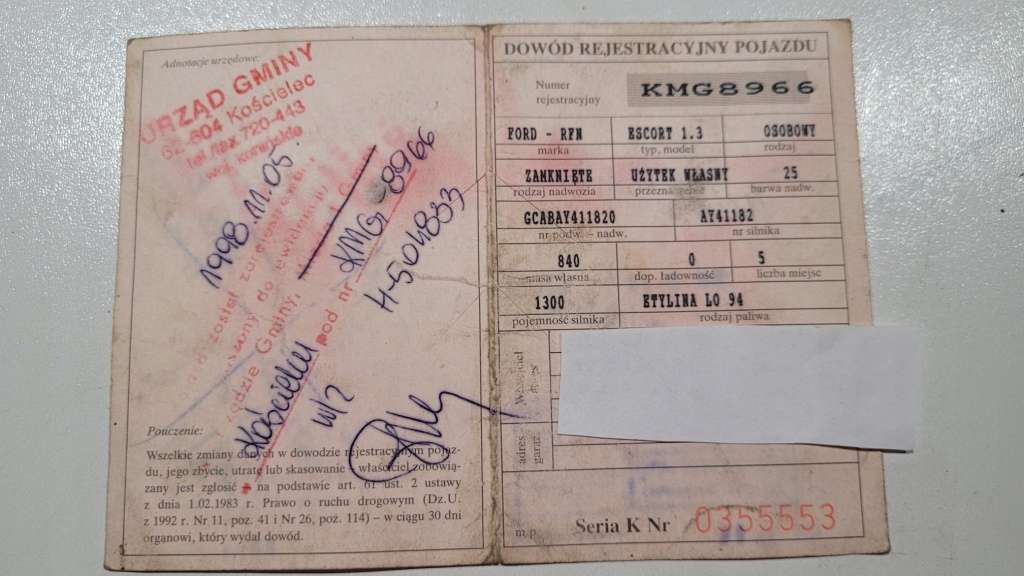 Adnotacje urzędowe:
URZĄD GMINY
62-604 Kościelec
tel./fax 720-443
woj. konińskie
1998.11.05
został
do ewidencji
Gminy,
Kościelcu pod nr KMG-8966
H-504833
w/z
Pouczenie:
Wszelkie zmiany danych w dowodzie rejestracyjnym pojaz-
du, jego zbycie, utratę lub skasowanie właściciel zobowią-
zany jest zgłosić na podstawie art. 61 ust. 2 ustawy
z dnia 1.02.1983 r. Prawo o ruchu drogowym (Dz.U.
z 1992 r. Nr 11, poz. 41 i Nr 26, poz. 114) – w ciągu 30 dni
organowi, który wydał dowód.
DOWÓD REJESTRACYJNY POJAZDU
Numer
rejestracyjny
KMG8966
FORD - RFN ESCORT 1.3 OSOBOWY
marka typ, model rodzaj
ZAMKNIĘTE UŻYTEK WŁASNY 25
rodzaj nadwozia przeznaczenie barwa nadw.
GCABAY411820 AY41182
nr podw. – nadw. nr silnika
840 0 5
masa własna dop. ładowność liczba miejsc
1300 ETYLINA LO 94
pojemność silnika rodzaj paliwa
Właściciel
adres
garaż.
m.p. Seria K Nr 0355553